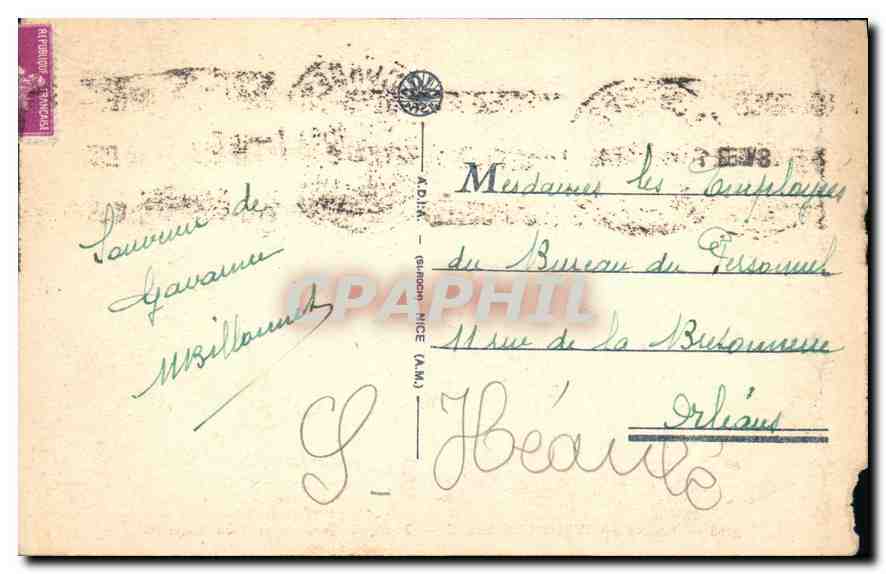 REPUBLIQUE FRANÇAISE
Souvenir de
Gavarnie
MBillonnet
A.D.I.A. - (St-ROCH) - NICE (A.M.)
Mesdames les Employées
du Bureau du Personnel
11 rue de la Bretonnerie
Orléans
CPAPHIL